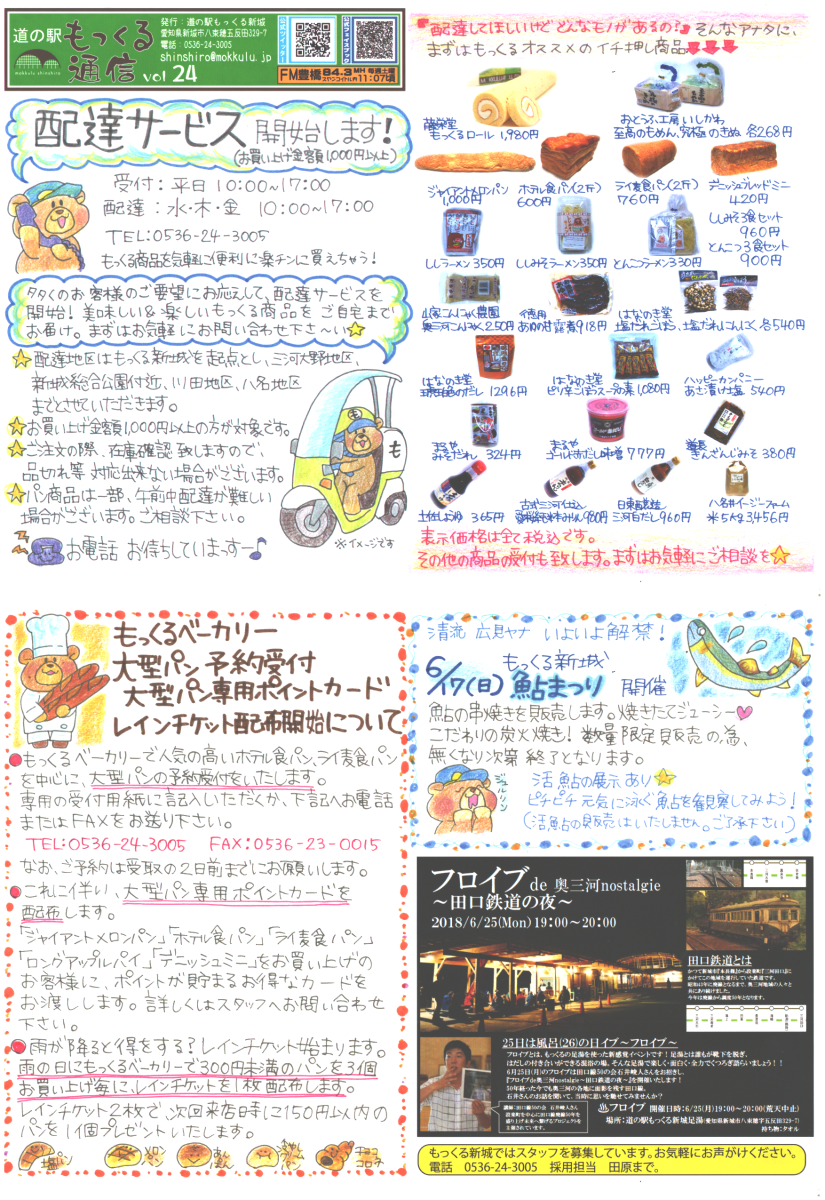 道の駅
もっくる
通信 vol 24
mokkulu shinshiro
発行：道の駅もっくる新城
愛知県新城市八束穂五反田329-7
電話：0536-24-3005
shinshiro@mokkulu.jp
公式ツイッター
公式フェイスブック
FM豊橋84.3MH 毎週土曜
11:07頃
配達サービス 開始します!
(お買い上げ金額1,000円以上)
受付：平日 10:00～17:00
配達：水・木・金 10:00～17:00
TEL:0536-24-3005
もっくる商品を気軽に便利に楽チンに買えちゃう!
多くのお客様のご要望にお応えして、配達サービスを
開始! 美味しい&楽しいもっくる商品を ご自宅まで
お届け。まずはお気軽にお問い合わせ下さ～い☆
☆配達地区はもっくる新城を起点とし、三河大野地区、
新城総合公園付近、川田地区、八名地区
までとさせていただきます。
☆お買い上げ金額1,000円以上の方が対象です。
☆ご注文の際、在庫確認致しますので
品切れ等対応出来ない場合がございます。
☆パン商品は一部、午前中配達が難しい
場合がございます。ご相談下さい。
お電話 お待ちしていまっすー♪
も
※イメージです
"配達してほしいけど どんなモノがあるの?" そんなアナタに、
まずはもっくるオススメのイチ押し商品
もっくるロール 1,980円
おとうふ工房いしかわ
至高のもめん、究極のきぬ 各268円
ジャイアントメロンパン
1,000円
ホテル食パン(2斤)
600円
ライ麦食パン(2斤)
760円
デニッシュブレッドミニ
420円
ししラーメン350円
ししみそラーメン350円
とんこつラーメン330円
ししみそ3食セット
960円
とんこつ3食セット
900円
山家こんにゃく農園
奥三河こんにゃく250円
徳用
あゆの甘露煮918円
はなのき堂
塩だれごぼう、塩だれにんにく各540円
はなのき堂
琥珀色のだし 1296円
はなのき堂
ピリ辛ごぼうスープの素 1,080円
ハッピーカンパニー
あさ漬け塩 540円
まるや
みそだれ 324円
まるや
ゴールドだし味噌 777円
きんざんじみそ 380円
土佐しょうゆ 365円
古式三河仕込
愛桜純米本みりん980円
日東醸造
三河白だし960円
八名井イージーファーム
米 5kg 3,456円
表示価格は全て税込です。
その他の商品の受付も致します。まずはお気軽にご相談を☆
もっくるベーカリー
大型パン予約受付
大型パン専用ポイントカード
レインチケット配布開始について
●もっくるベーカリーで人気の高いホテル食パン、ライ麦食パン
を中心に、大型パンの予約受付をいたします。
専用の受付用紙に記入いただくか、下記へお電話
またはFAXをお送り下さい。
TEL:0536-24-3005 FAX:0536-23-0015
なお、ご予約は受取の2日前までにお願いします。
●これに伴い、大型パン専用ポイントカードを
配布します。
「ジャイアントメロンパン」「ホテル食パン」「ライ麦食パン」
「ロングアップルパイ」「デニッシュミニ」をお買い上げの
お客様に、ポイントが貯まるお得なカードを
お渡しします。詳しくはスタッフへお問い合わせ
下さい。
●雨が降ると得をする? レインチケット始まります。
雨の日にもっくるベーカリーで300円未満のパンを3個
お買い上げ毎に、レインチケットを1枚配布します。
レインチケット2枚で、次回来店時に150円以内の
パンを1個プレゼントいたします。
塩パン
メロンパン
あんぱん
チョココロネ
清流 広見ヤナ いよいよ解禁!
もっくる新城
6/17(日) 鮎まつり 開催
鮎の串焼きを販売します。焼きたてジューシー♥
こだわりの炭火焼き! 数量限定販売の為、
無くなり次第 終了となります。
活鮎の展示あり☆
ピチピチ元気に泳ぐ鮎を観察してみよう!
(活鮎の販売はいたしません。ご了承下さい)
フロイブde 奥三河nostalgie
～田口鉄道の夜～
2018/6/25(Mon) 19:00～20:00
田口鉄道とは
25日は風呂(26)の日イブ～フロイブ～
フロイブとは、もっくるの足湯を使った新感覚イベントです！足湯とは誰もが靴下を脱ぎ、
はだしの付き合いができる混浴の場。そんな足湯で楽しく・面白く・全力でくつろぎ語らいましょう！！
6月25日(月)のフロイブは田口線50の会石井峻人さんをお招きし、
『フロイブde奥三河nostalgie～田口鉄道の夜～』を開催いたします！
50年経った今でも奥三河の各地に面影を残す田口線。
石井さんのお話を聞いて、当時に思いを馳せてみませんか？
フロイブ 開催日時:6/25(月)19:00～20:00(荒天中止)
場所:道の駅もっくる新城足湯(愛知県新城市八束穂字五反田329-7)
持ち物:タオル
もっくる新城ではスタッフを募集しています。お気軽にお声がけください。
電話 0536-24-3005 採用担当 田原まで。